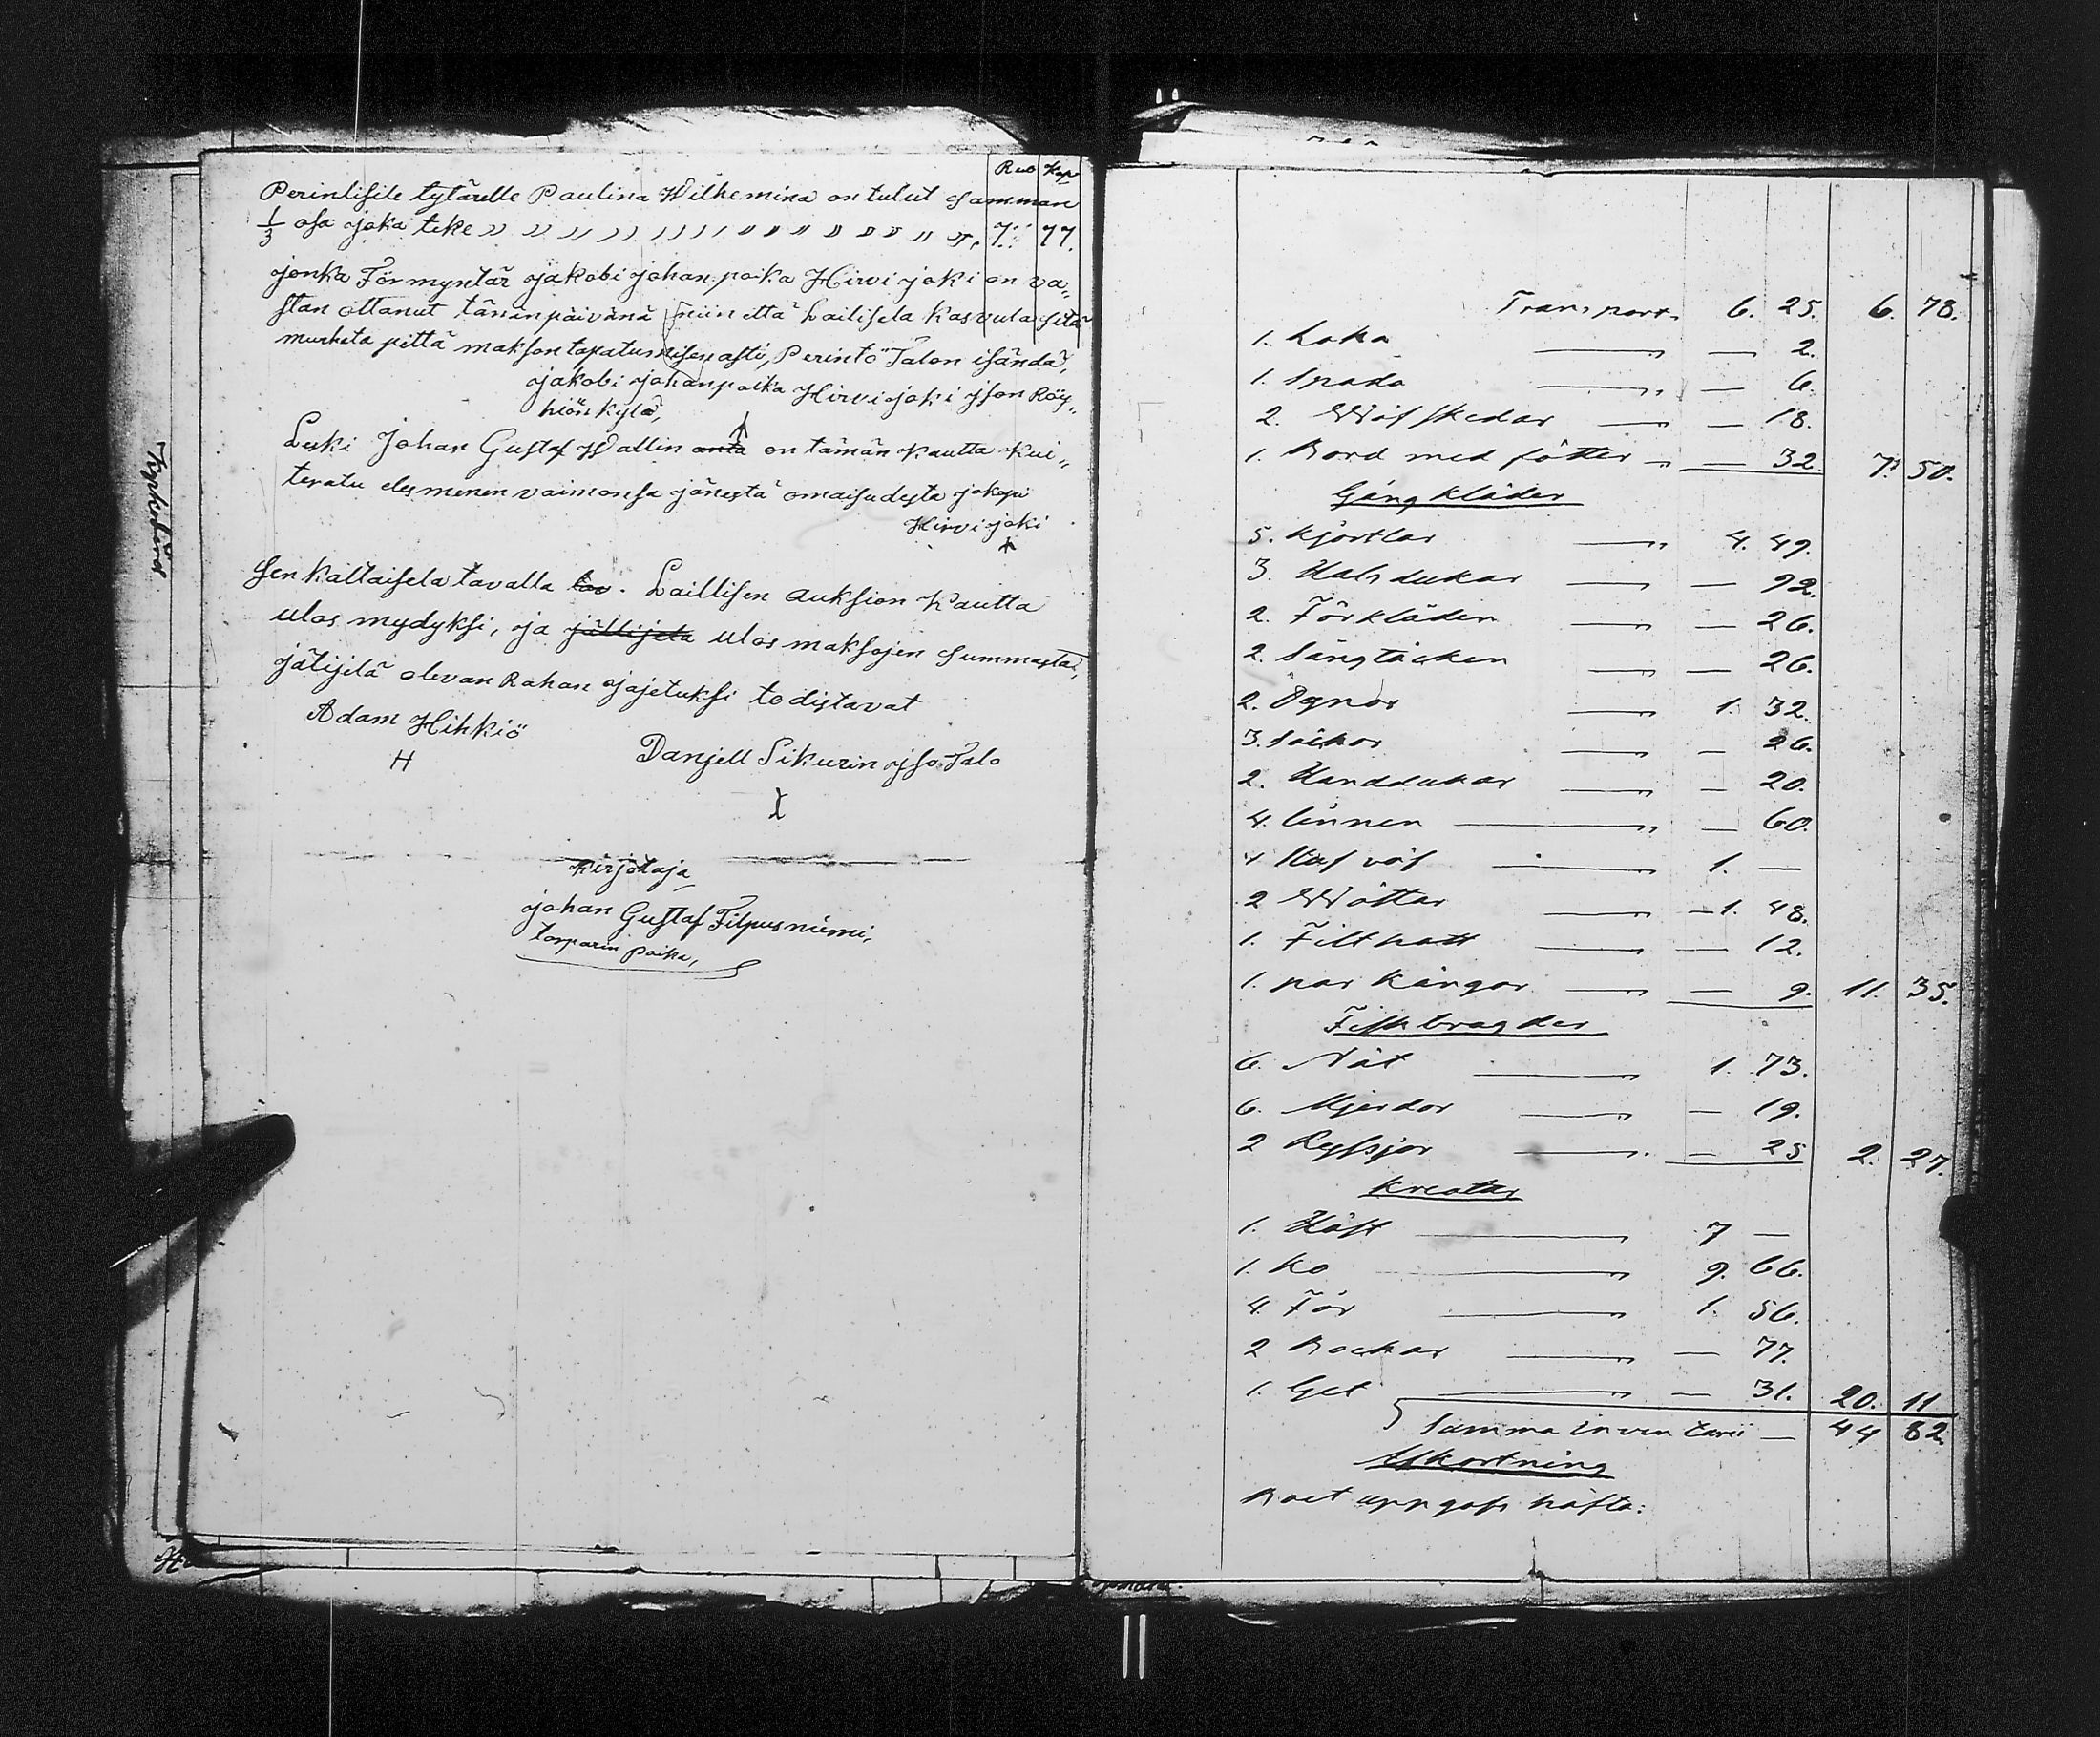 Rub Kop
Perinlisile tytärelle Paulina Wilhemina on tulut Samman
1/3 osa joka teke " " " " " " " " " " " " " " 7. 77.
jonka Förmyntär jakobi johanpoika Hirvijoki on va„
stan ottanut tänänpäivänä niin että Lailisela Kasvula sitä
murheta pittä makson tapatumisen asti, Perintö Talon isändä,
jakobi johanpoika Hirvijoki json Röy„
hiön kylä,
Leski Johan Gustaf Wallin anta on tämän kautta kui„
teratu elesmenen vaimonsa jänestä omaisudesta jakopi
Hirvijoki
Sen kaltaisela tavalla . Laillisen auksion kautta
ulos mydyksi, ja jällijeta ulos maksojen Summasta,
jälijelä olevan Rahan jajetuksi todistavat
Adam Hihkiö
H
Danjell Sikurin jso Talo
Kirjotaja
johan Gustaf Filpusniemi,
torparin poika,
Kyrkoherd
Transport. 6. 25. 6. 78.
1. Laka — 2.
1. Spada — 6.
2. Wäfskedar — 18.
1. Bord med fötter — 32. 7. 50.
Gångkläder
5. Kjortlar 4. 49.
3. Halsdukar — 92.
2. Förkläden — 26.
2. Sängtäcken — 26.
2. Ögnor 1. 32.
3. Säckar — 26.
2. Handdukar — 20.
4. linnen — 60.
1 Haf väf 1. —
2 Wöttar — 1. 48.
1. Filthatt — 12.
1. par Kängor — 9. 11. 35.
Fiskbragder
6. Nät 1. 73.
6. Mjerdor — 19.
2 Ryssjor — 25 2. 27.
Kreatur
1. Häst 7 —
1. Ko 9. 66.
4. Får 1. 56.
2 Bockar — 77.
1. Get — 31. 20. 11
Summa inventarii — 44 82
Afkortning
Boet uppgafs häfta: